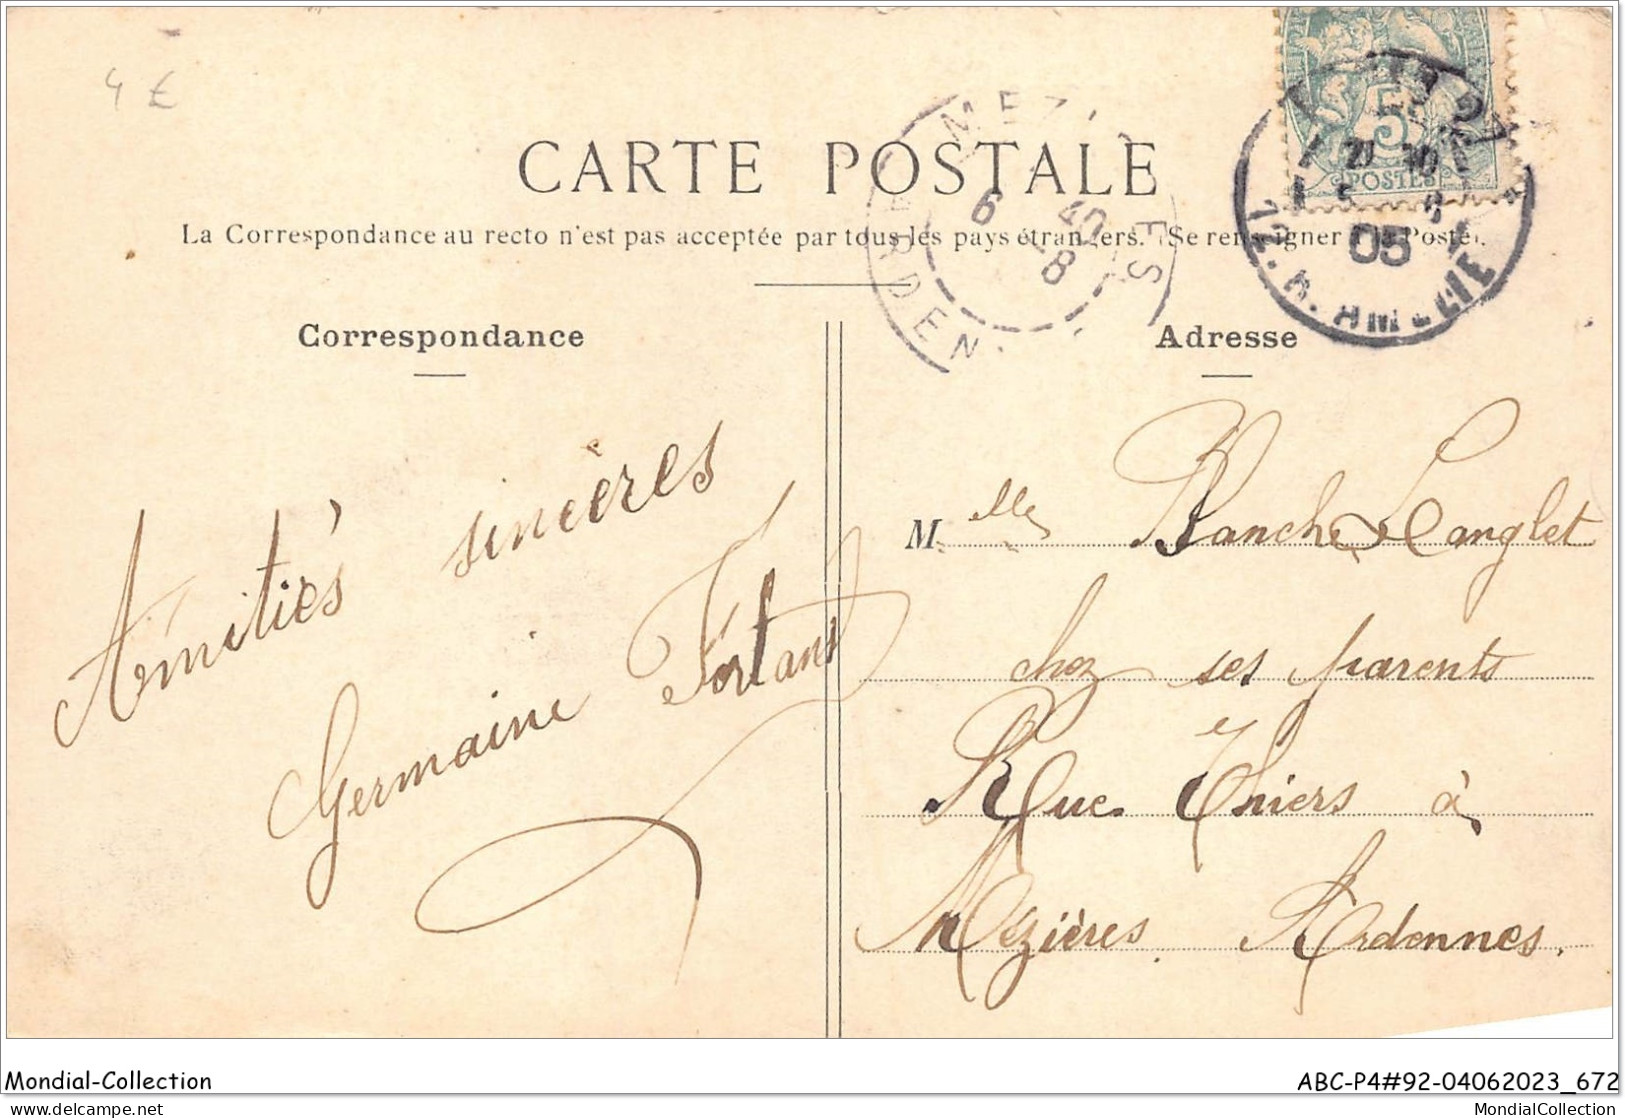 4 £
CARTE POSTALE
La Correspondance au recto n'est pas acceptée par tous les pays étrangers. (Se renseigner à la Poste).
5
POSTES
05
12. R. AMELIE
6
8
Correspondance
Adresse
Amitiés sincères
Germaine Fortans
Melle Blanche Langlet
chez ses parents
Rue Thiers à
Mézières. Ardennes.
Mondial-Collection
ABC-P4#92-04062023_672
delcampe.net
MondialCollection